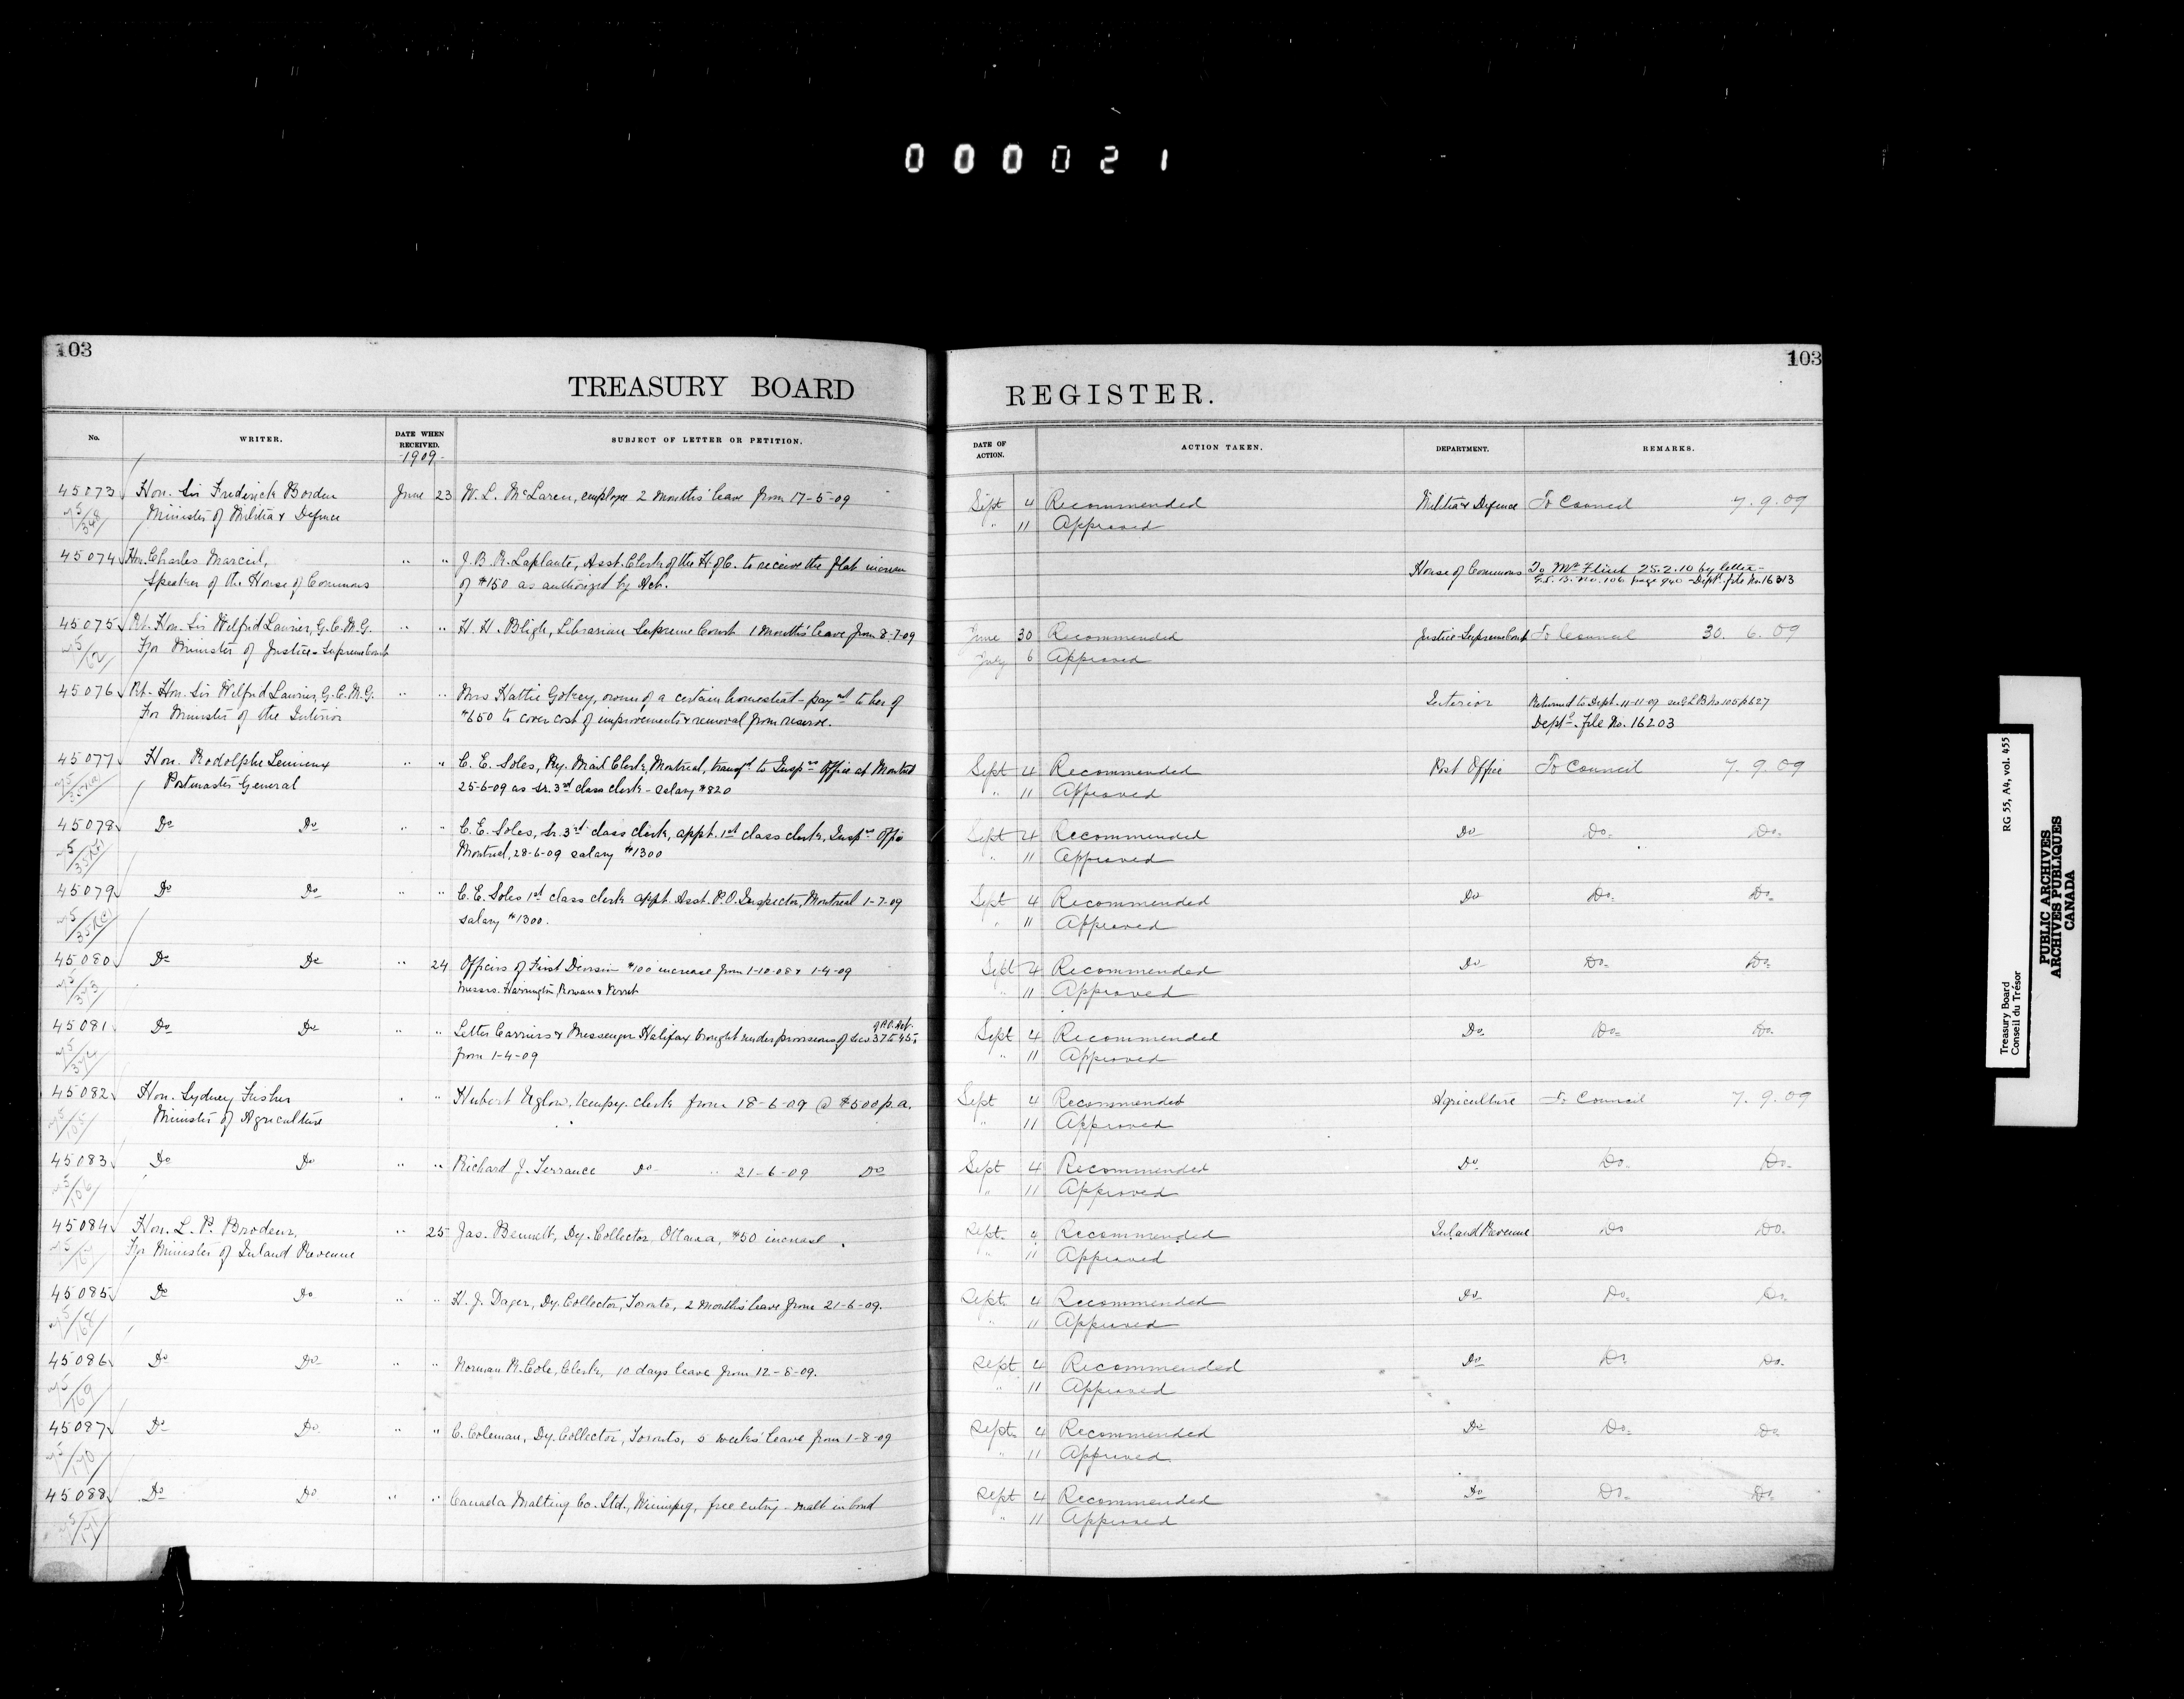 000021
103
TREASURY BOARD
No.
WRITER.
DATE WHEN RECEIVED.
SUBJECT OF LETTER OR PETITION.
-1909-
45073 Hon. Sir Frederick Borden June 23 W. L. McLaren, employe 2 months' leave from 17-5-09
Minister of Militia & Defence
45074 Hon. Charles Marcil, " " J. B. R. Laplante, Asst. Clerk of the H. of C. to receive the flat increase
Speaker of the House of Commons of $150 as authorized by Act.
45075 Rt. Hon. Sir Wilfrid Laurier, G.C.M.G. " " H. H. Bligh, Librarian Supreme Court 1 months' leave from 8-7-09
For Minister of Justice - Supreme Court
45076 Rt. Hon. Sir Wilfrid Laurier, G.C.M.G. " " Mrs Hattie , owner of a certain homestead - paymt to her of
For Minister of the Interior $650 to cover cost of improvements & removal from reserve.
45077 Hon. Rodolphe Lemieux " " C. E. Soles, Ry. Mail Clerk, Montreal, transfd to Insprs Office at Montreal
Postmaster General 25-6-09 as Sr. 3rd class clerk - salary $820
45078 Do Do " " C. E. Soles, Sr. 3rd class clerk, appt. 1st class clerk, Insprs Office
Montreal, 28-6-09 salary $1300
45079 Do Do " " C. E. Soles 1st class clerk appt. Asst. P.O. Inspector, Montreal 1-7-09
salary $1300.
45080 Do Do " 24 Officers of First Division $100 increase from 1-10-08 & 1-4-09
Messrs. Harrington, Rowan & Verret
45081 Do Do " " Letter Carriers & Messenger Halifax brought under provisions of Secs of P.O. Act
from 1-4-09
45082 Hon. Sydney Fisher " " Hubert Uglow, tempy. clerk from 18-6-09 @ $500 p.a.
Minister of Agriculture
45083 Do Do " " Richard J. Torrance Do " 21-6-09 Do
45084 Hon. L. P. Brodeur, " 25 Jas. Bennett, Dy. Collector, Ottawa, $50 increase.
For Minister of Inland Revenue
45085 Do Do " " H. J. Dager, Dy. Collector, Toronto, 2 months' leave from 21-6-09.
45086 Do Do " " Norman R. Cole, Clerk, 10 days leave from 12-8-09.
45087 Do Do " " C. Coleman, Dy. Collector, Toronto, weeks' leave from 1-8-09
45088 Do Do " " Canada Malting Co. Ltd., Winnipeg, free entry - malt in bond
103
REGISTER.
DATE OF ACTION.
ACTION TAKEN.
DEPARTMENT.
REMARKS.
Sept 4 Recommended Militia & Defence To Council 7.9.09
" 11 Approved
House of Commons To Mr Flint 25.2.10 by letter -
G.L.B. No. 106 page 940 - Dept. file No.
June 30 Recommended Justice - Supreme Court To Council 30.6.09
July 6 Approved
Interior Returned to Dept. 11-11-09 see G L B No 105 p 627
Deptl. File No. 16203
Sept 4 Recommended Post Office To Council 7.9.09
" 11 Approved
Sept 4 Recommended Do Do. Do.
" 11 Approved
Sept 4 Recommended Do Do. Do.
" 11 Approved
Sept 4 Recommended Do Do. Do.
" 11 Approved
Sept 4 Recommended Do. Do. Do.
" 11 Approved
Sept 4 Recommended Agriculture To Council 7.9.09
" 11 Approved
Sept 4 Recommended Do Do. Do.
" 11 Approved
Sept. 4 Recommended Inland Revenue Do Do.
" 11 Approved
Sept. 4 Recommended Do Do. Do.
" 11 Approved
Sept 4 Recommended Do Do Do.
" 11 Approved
Sept. 4 Recommended Do Do. Do
" 11 Approved
Sept 4 Recommended Do Do. Do.
" 11 Approved
Treasury Board RG 55, A4, vol. 455
Conseil du Trésor
PUBLIC ARCHIVES
ARCHIVES PUBLIQUES
CANADA